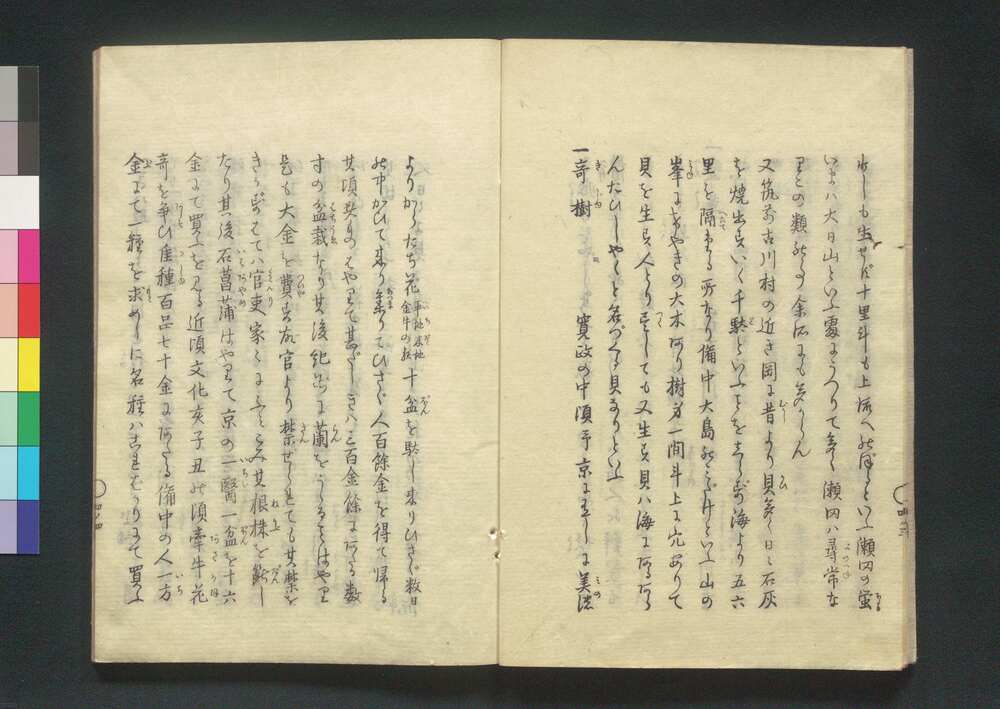 少しも生せす十里斗も上流へのほるといふ瀬田の蛍
いまハ大日山といふ處にうつりて多く瀬田ハ尋常な
りこの類のもの余波にも多からん
又筑前古川村の近き岡に昔より貝多く日々石灰
を焼出すいく千駄といふことをしらす海より五六
里を隔まる所なり備中大島のみたけといふ山の
峯にけやきの大木あり樹身一間斗上に穴ありて
貝を生す人とり尽しても又生す貝ハ海にある
んたひしやくと名つくる貝なりといふ
一奇樹 寛政の中頃予京にありしに美濃
よりからたち花 十盆を駄し来りひさく数日
の中かひて来り集りてひさく人百餘金を得て帰る
其頃のはやりて甚だしきハ三百金餘にあたる数
寸の盆栽なり其後紀の国に蘭をうることはやり
是も大金を費す故官より禁せられても其禁を
きかされハ官吏家々にふみこみ其根株を断し
たり其後石菖蒲はやりて京の一醫一盆を十六
金にて買ふを見る近頃文化亥子丑の頃牽牛花
奇を争ひ 種百品七十金にあたる備中の人一方
金にて一種を求めしに名種ハこれはかりにて買ふ